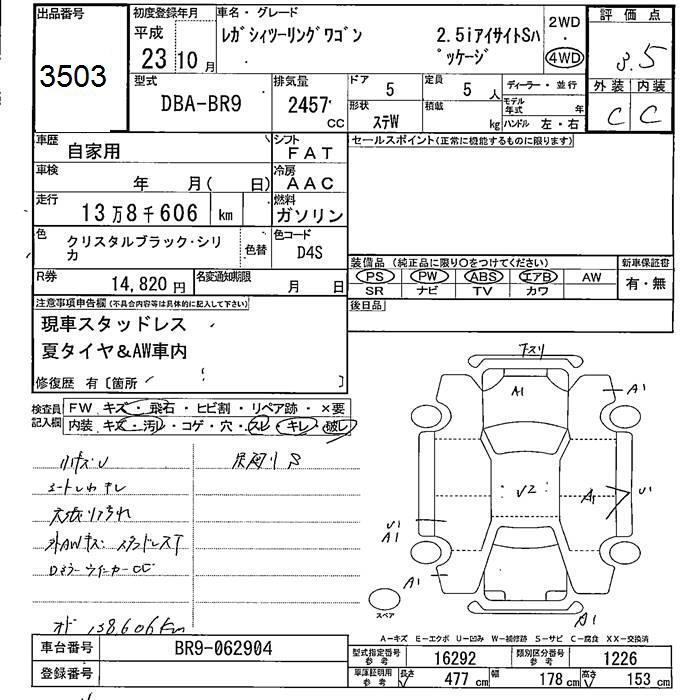 出品番号
3503
初度登録年月
平成
23年10月
車名・グレード
レガシィツーリングワゴン 2.5iアイサイトSハ
ッケージ
2WD
・
4WD
評価点
3.5
外装 内装
C C
型式
DBA-BR9
排気量
2457
CC
ドア
5
定員
5人
ディーラー・並行
モデル年式 年
形状
ステW
積載
kg
ハンドル 左・右
車歴
自家用
シフト
FAT
車検
年 月( 日)
冷房
AAC
走行
13万8千606 km
燃料
ガソリン
色
クリスタルブラック・シリ
カ
色替
色コード
D4S
R券
14,820円
名変通知期限
月 日
セールスポイント(正常に機能するものに限ります)
装備品(純正品に限り○をつけてください)
PS PW ABS エアB AW
SR ナビ TV カワ
新車保証書
有・無
後日品
注意事項申告欄(不具合内容等は具体的に記入して下さい)
現車スタッドレス
夏タイヤ&AW車内
修復歴 有〔箇所 〕
検査員
記入欄
FW キズ・飛石・ヒビ割・リペア跡・×要
内装 キズ・汚レ・コゲ・穴・スレ・キレ・破レ
外AWキズ スタッドレスT
Dミラーウインカー
オド 138,606Km
A1
A1
V2
A1
U1
U1
A1
A1
A1
スペア
A−キズ E−エクボ U−凹み W−補修跡 S−サビ C−腐食 XX−交換済
車台番号
BR9-062904
登録番号
型式指定番号
参考
16292
類別区分番号
参考
1226
車庫証明用
参考
長さ 477cm 幅 178cm 高さ 153cm